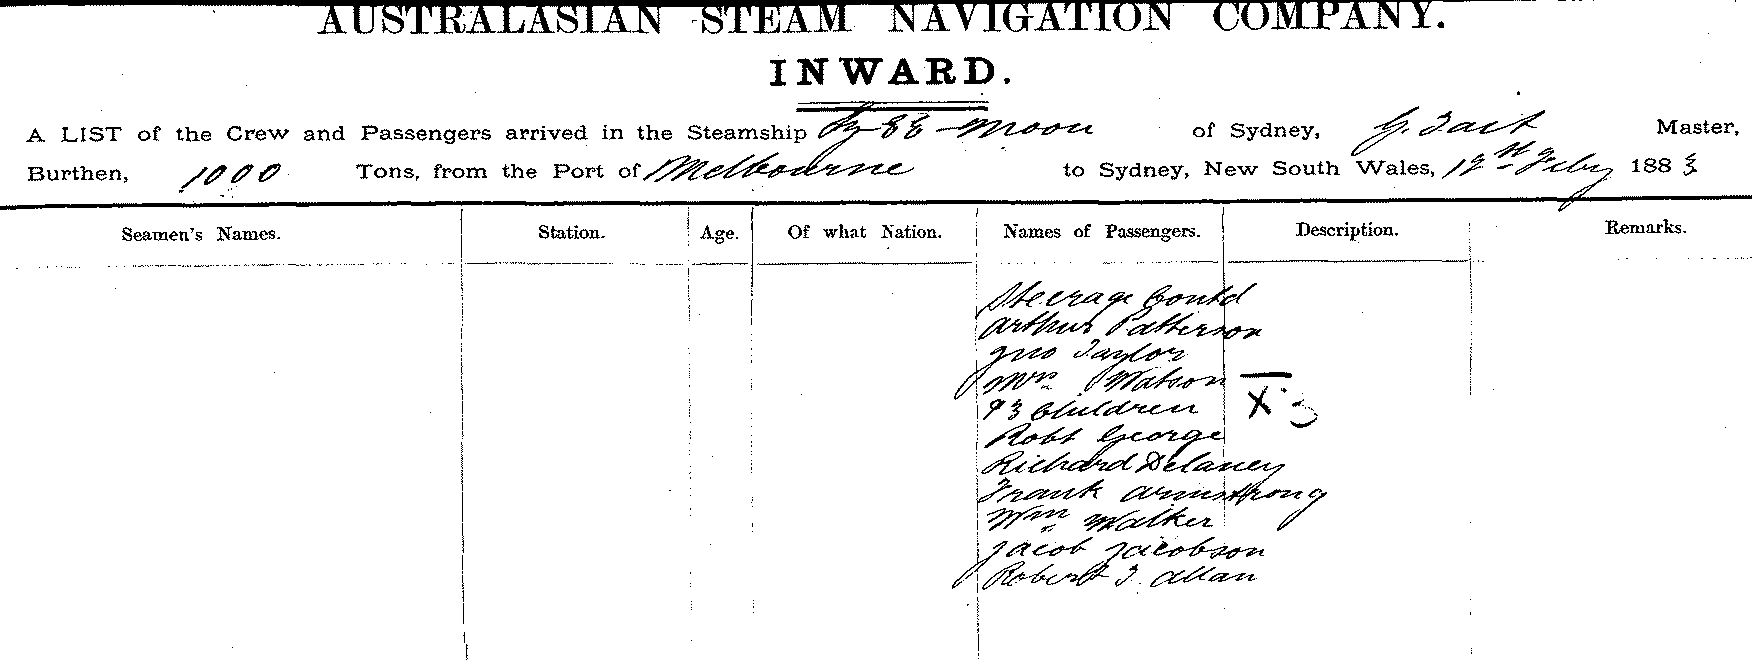 AUSTRALASIAN STEAM NAVIGATION COMPANY.
INWARD.
A LIST of the Crew and Passengers arrived in the Steamship Ly-EE-Moon of Sydney, G. Tait Master,
Burthen, 1000 Tons, from the Port of Melbourne to Sydney, New South Wales, 12th Feby 1883
Seamen's Names. Station. Age. Of what Nation. Names of Passengers. Description. Remarks.
Steerage Contd
Arthur Patterson
Geo Taylor
Mrs Watson
& 3 Children X 3
Robt George
Richard Delaney
Frank Armstrong
Wm Walker
Jacob Jacobson
Robert J. Allan